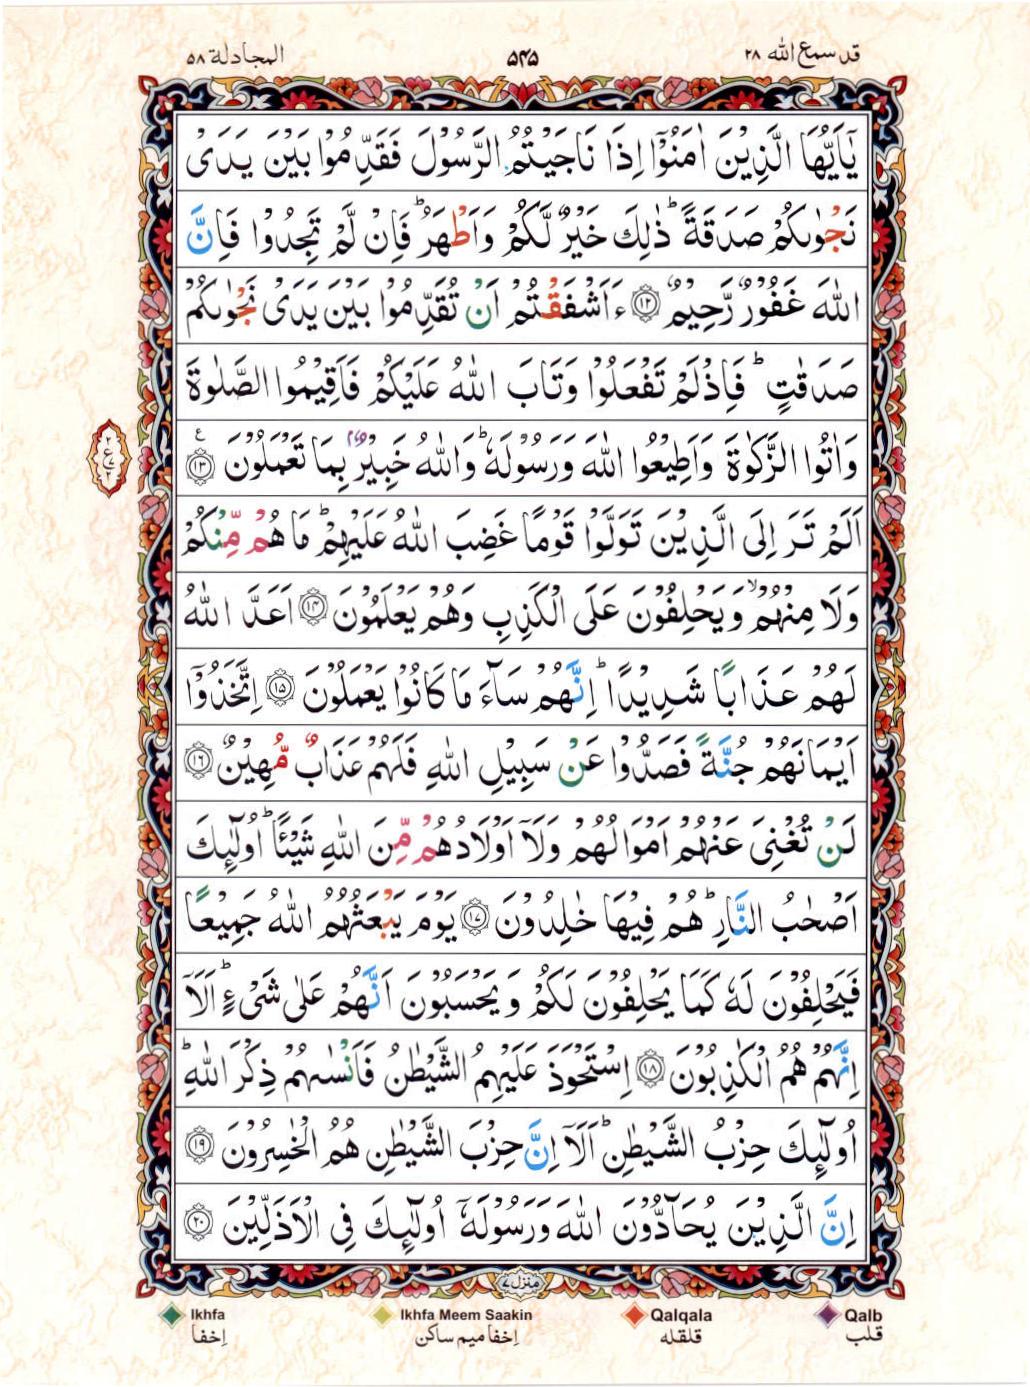 المجادلة ۵۸
۵۴۵
قد سمع الله ۲۸
يٰٓاَيُّهَا الَّذِيْنَ اٰمَنُوْٓا اِذَا نَاجَيْتُمُ الرَّسُوْلَ فَقَدِّمُوْا بَيْنَ يَدَىْ
نَجْوٰىكُمْ صَدَقَةً ؕ ذٰلِكَ خَيْرٌ لَّكُمْ وَاَطْهَرُ ؕ فَاِنْ لَّمْ تَجِدُوْا فَاِنَّ
اللّٰهَ غَفُوْرٌ رَّحِيْمٌ ۝۱۲ ءَاَشْفَقْتُمْ اَنْ تُقَدِّمُوْا بَيْنَ يَدَىْ نَجْوٰىكُمْ
صَدَقٰتٍ ؕ فَاِذْ لَمْ تَفْعَلُوْا وَتَابَ اللّٰهُ عَلَيْكُمْ فَاَقِيْمُوا الصَّلٰوةَ
وَاٰتُوا الزَّكٰوةَ وَاَطِيْعُوا اللّٰهَ وَرَسُوْلَهٗ ؕ وَاللّٰهُ خَبِيْرٌۢ بِمَا تَعْمَلُوْنَ ۝۱۳ ع
اَلَمْ تَرَ اِلَى الَّذِيْنَ تَوَلَّوْا قَوْمًا غَضِبَ اللّٰهُ عَلَيْهِمْ ؕ مَا هُمْ مِّنْكُمْ
وَلَا مِنْهُمْ ۙ وَيَحْلِفُوْنَ عَلَى الْكَذِبِ وَهُمْ يَعْلَمُوْنَ ۝۱۴ اَعَدَّ اللّٰهُ
لَهُمْ عَذَابًا شَدِيْدًا ؕ اِنَّهُمْ سَآءَ مَا كَانُوْا يَعْمَلُوْنَ ۝۱۵ اِتَّخَذُوْٓا
اَيْمَانَهُمْ جُنَّةً فَصَدُّوْا عَنْ سَبِيْلِ اللّٰهِ فَلَهُمْ عَذَابٌ مُّهِيْنٌ ۝۱۶
لَنْ تُغْنِىَ عَنْهُمْ اَمْوَالُهُمْ وَلَآ اَوْلَادُهُمْ مِّنَ اللّٰهِ شَيْئًا ؕ اُولٰٓئِكَ
اَصْحٰبُ النَّارِ ؕ هُمْ فِيْهَا خٰلِدُوْنَ ۝۱۷ يَوْمَ يَبْعَثُهُمُ اللّٰهُ جَمِيْعًا
فَيَحْلِفُوْنَ لَهٗ كَمَا يَحْلِفُوْنَ لَكُمْ وَيَحْسَبُوْنَ اَنَّهُمْ عَلٰى شَىْءٍ ؕ اَلَآ
اِنَّهُمْ هُمُ الْكٰذِبُوْنَ ۝۱۸ اِسْتَحْوَذَ عَلَيْهِمُ الشَّيْطٰنُ فَاَنْسٰىهُمْ ذِكْرَ اللّٰهِ ؕ
اُولٰٓئِكَ حِزْبُ الشَّيْطٰنِ ؕ اَلَآ اِنَّ حِزْبَ الشَّيْطٰنِ هُمُ الْخٰسِرُوْنَ ۝۱۹
اِنَّ الَّذِيْنَ يُحَآدُّوْنَ اللّٰهَ وَرَسُوْلَهٗٓ اُولٰٓئِكَ فِى الْاَذَلِّيْنَ ۝۲۰
منزل ۷
Ikhfa
اِخفا
Ikhfa Meem Saakin
اِخفا میم ساکن
Qalqala
قلقله
Qalb
قلب